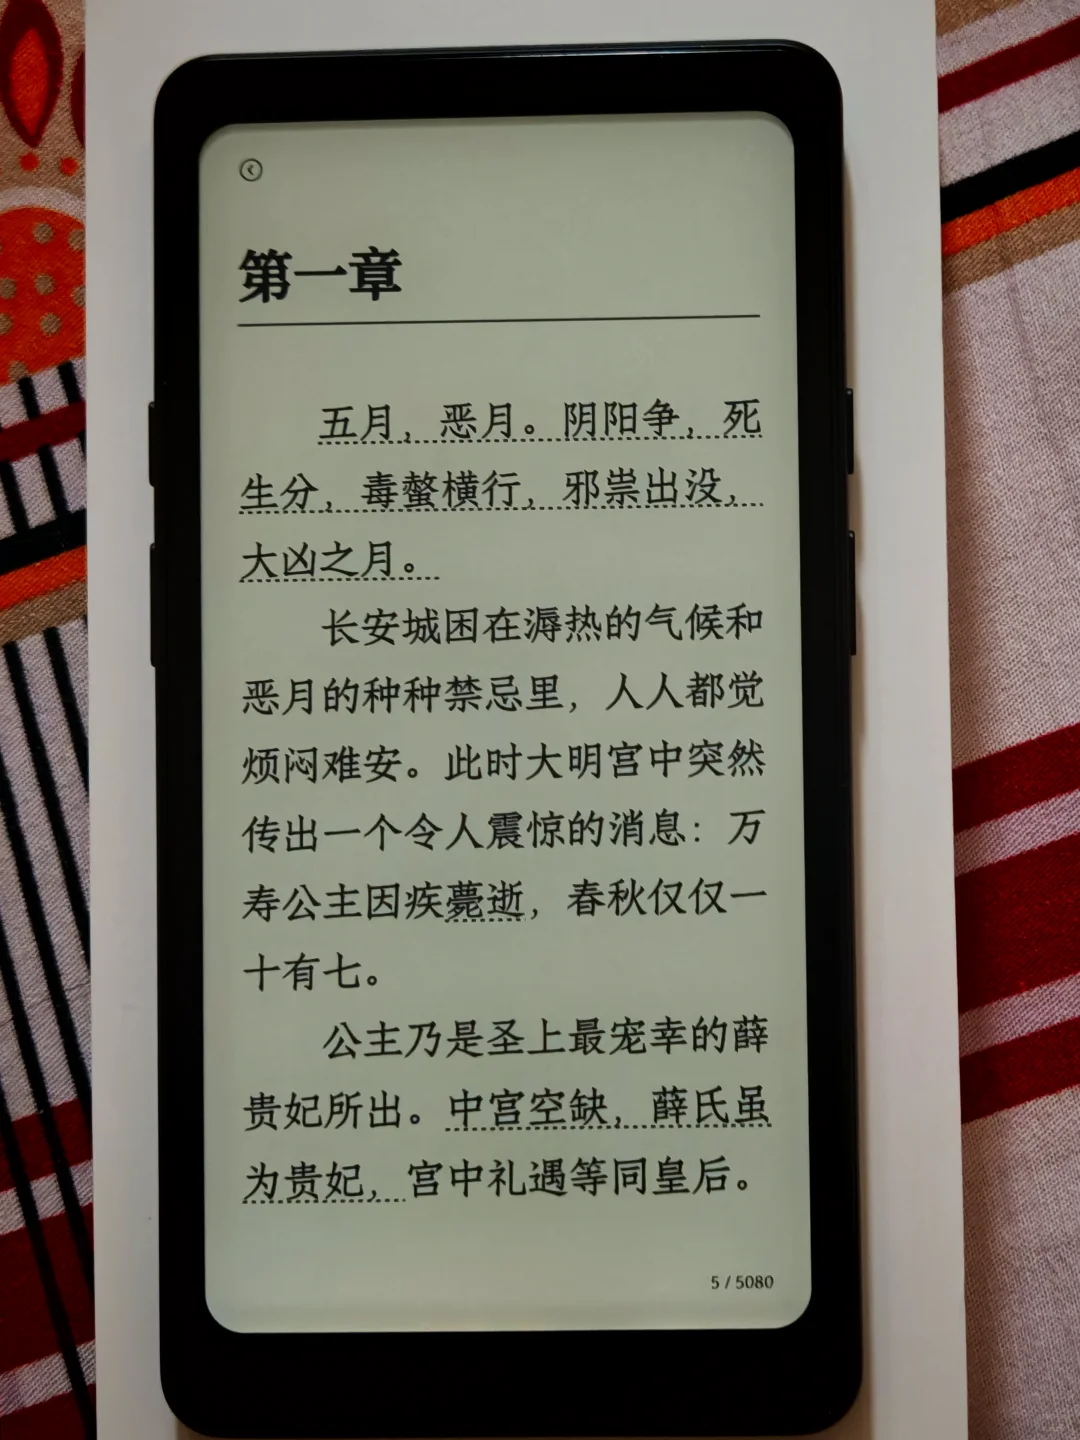 第一章
五月，恶月。阴阳争，死
生分，毒螫横行，邪祟出没，
大凶之月。
长安城困在溽热的气候和
恶月的种种禁忌里，人人都觉
烦闷难安。此时大明宫中突然
传出一个令人震惊的消息：万
寿公主因疾薨逝，春秋仅仅一
十有七。
公主乃是圣上最宠幸的薛
贵妃所出。中宫空缺，薛氏虽
为贵妃，宫中礼遇等同皇后。
5 / 5080